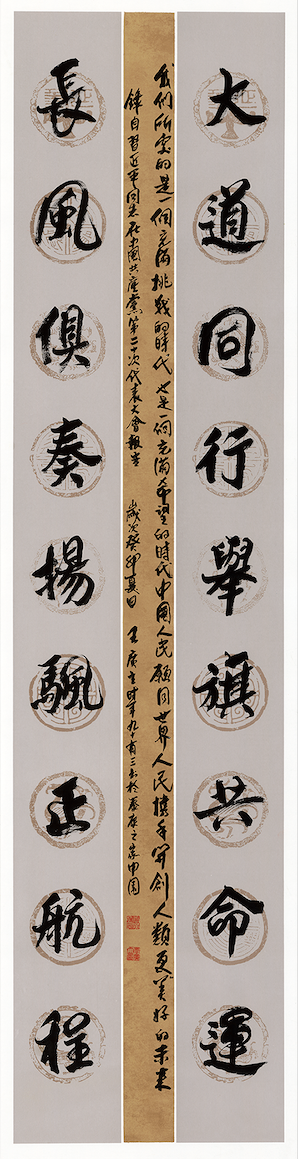 大道同行舉旗共命運
我們所處的是一個充滿挑戰的時代也是一個充滿希望的時代中國人民願同世界人民攜手開創人類更美好的未來
錄自習近平同志在中國共產黨第二十次代表大會報告 歲次癸卯夏日 王廣 時年九十有三書於 康之家中園
長風俱奏揚颿正航程